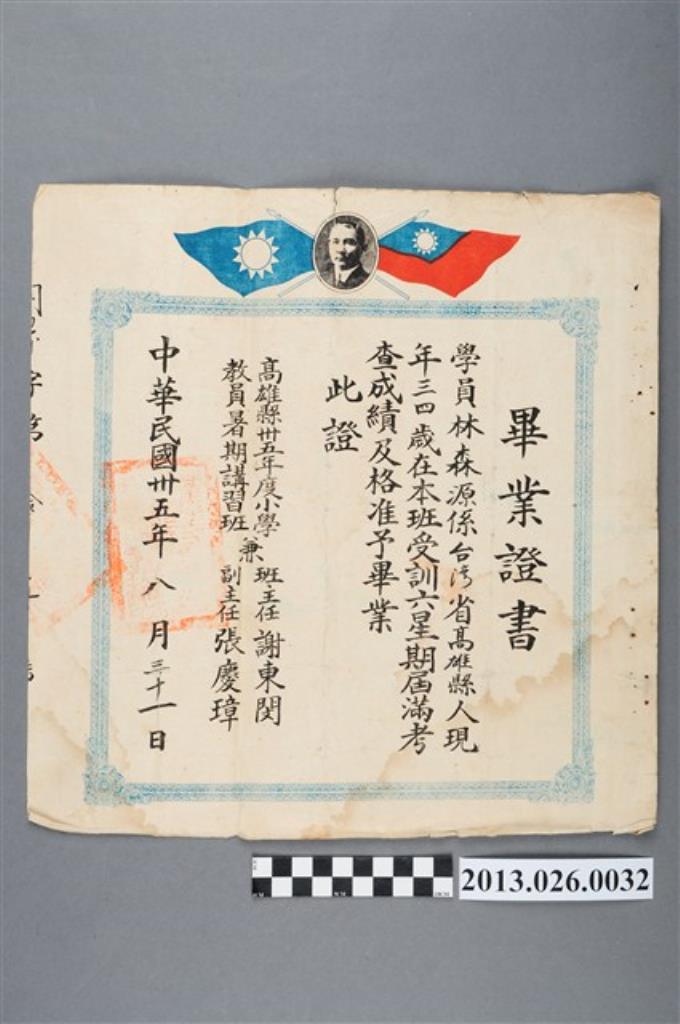 畢業證書
學員林森源係台湾省高雄縣人現
年三四歲在本班受訓六星期屆滿考
查成績及格准予畢業
此證
高雄縣卅五年度小學
教員暑期講習班
兼
班主任謝東閔
副主任張慶璋
中華民國卅五年八月三十一日
字第
2013.026.0032